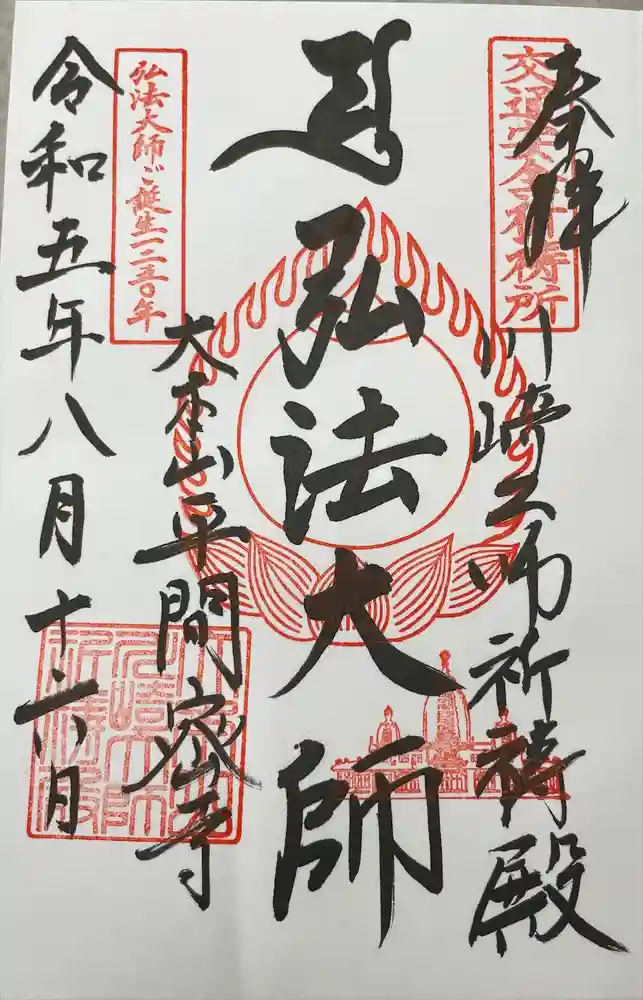 奉拝
交通安全祈祷所
川崎大師祈祷殿
弘法大師
大本山平間密寺
弘法大師ご誕生一二五〇年
令和五年八月十六日